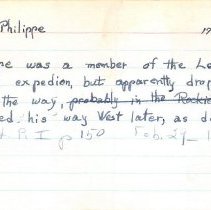 Philippe 19
re was a member of the Le
expedion, but apparently drop
the way, probably in the Rockie
ed his way West later, as d
P. I p 150 Feb. 27_ 1